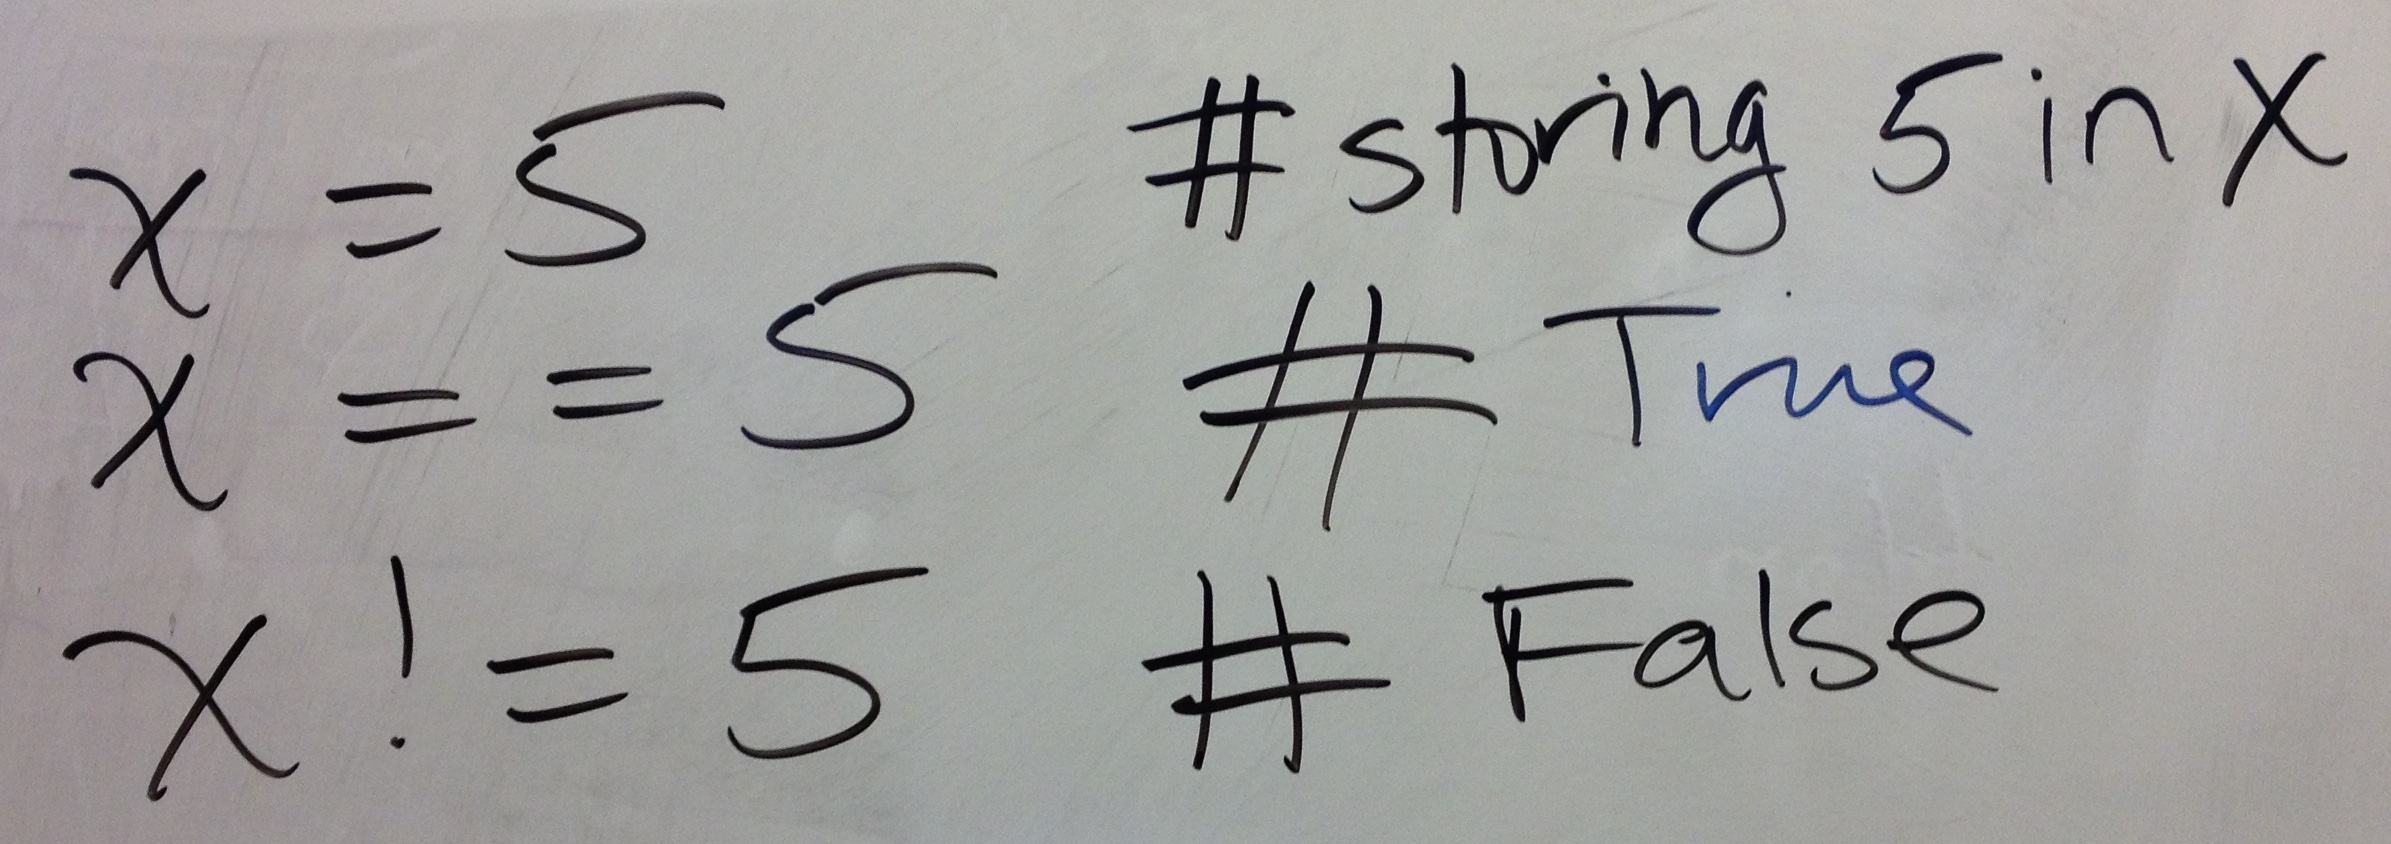 x = 5 #storing 5 in x
x = = 5 # True
x ! = 5 # False